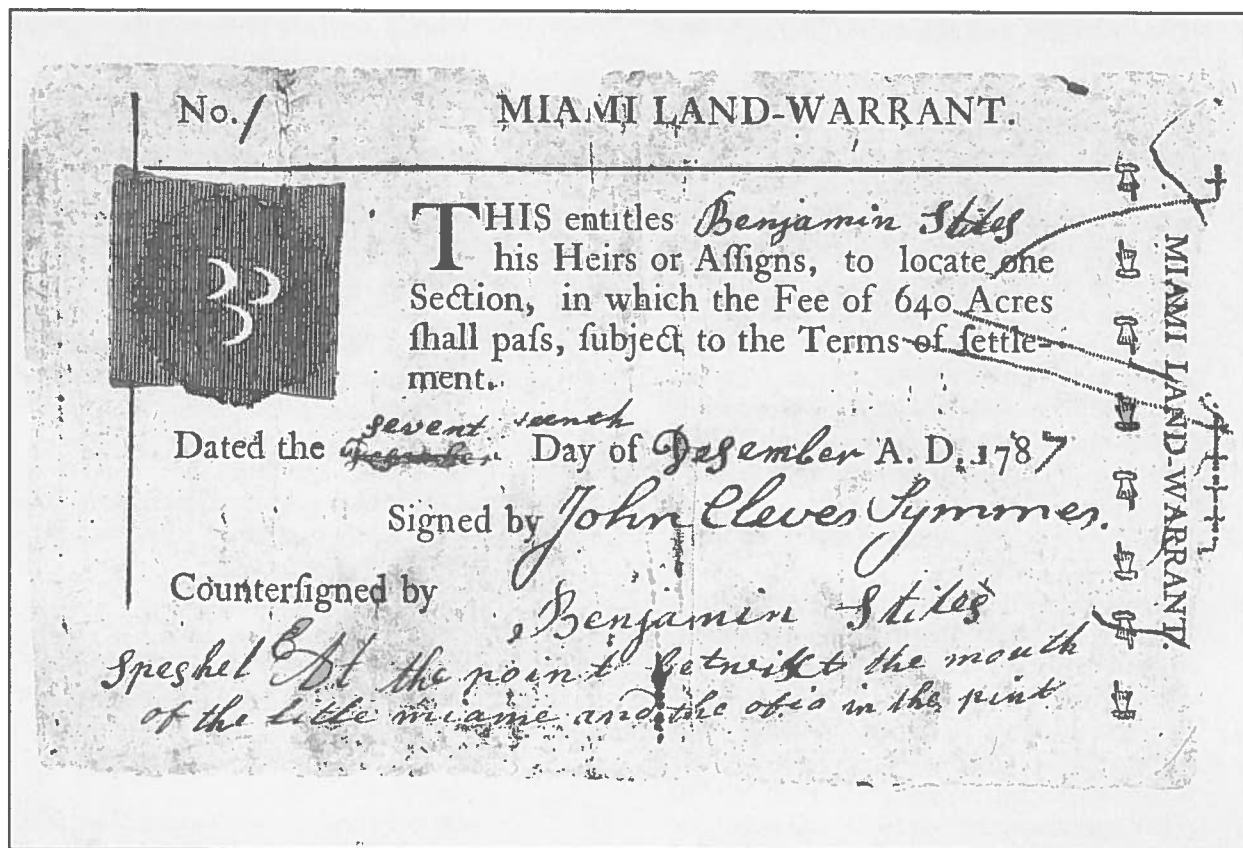 No. 1 MIAMI LAND-WARRANT.
THIS entitles Benjamin Stites
his Heirs or Aſſigns, to locate one
Section, in which the Fee of 640 Acres
ſhall paſs, ſubject to the Terms of ſettle-
ment.
sevent teenth
Dated the Day of Desember A. D. 1787
Signed by John Cleves Symmes.
Counterſigned by
Benjamin Stites
Speshel At the point betwixt the mouth
of the little miame and the ohio in the pint
MIAMI LAND-WARRANT.